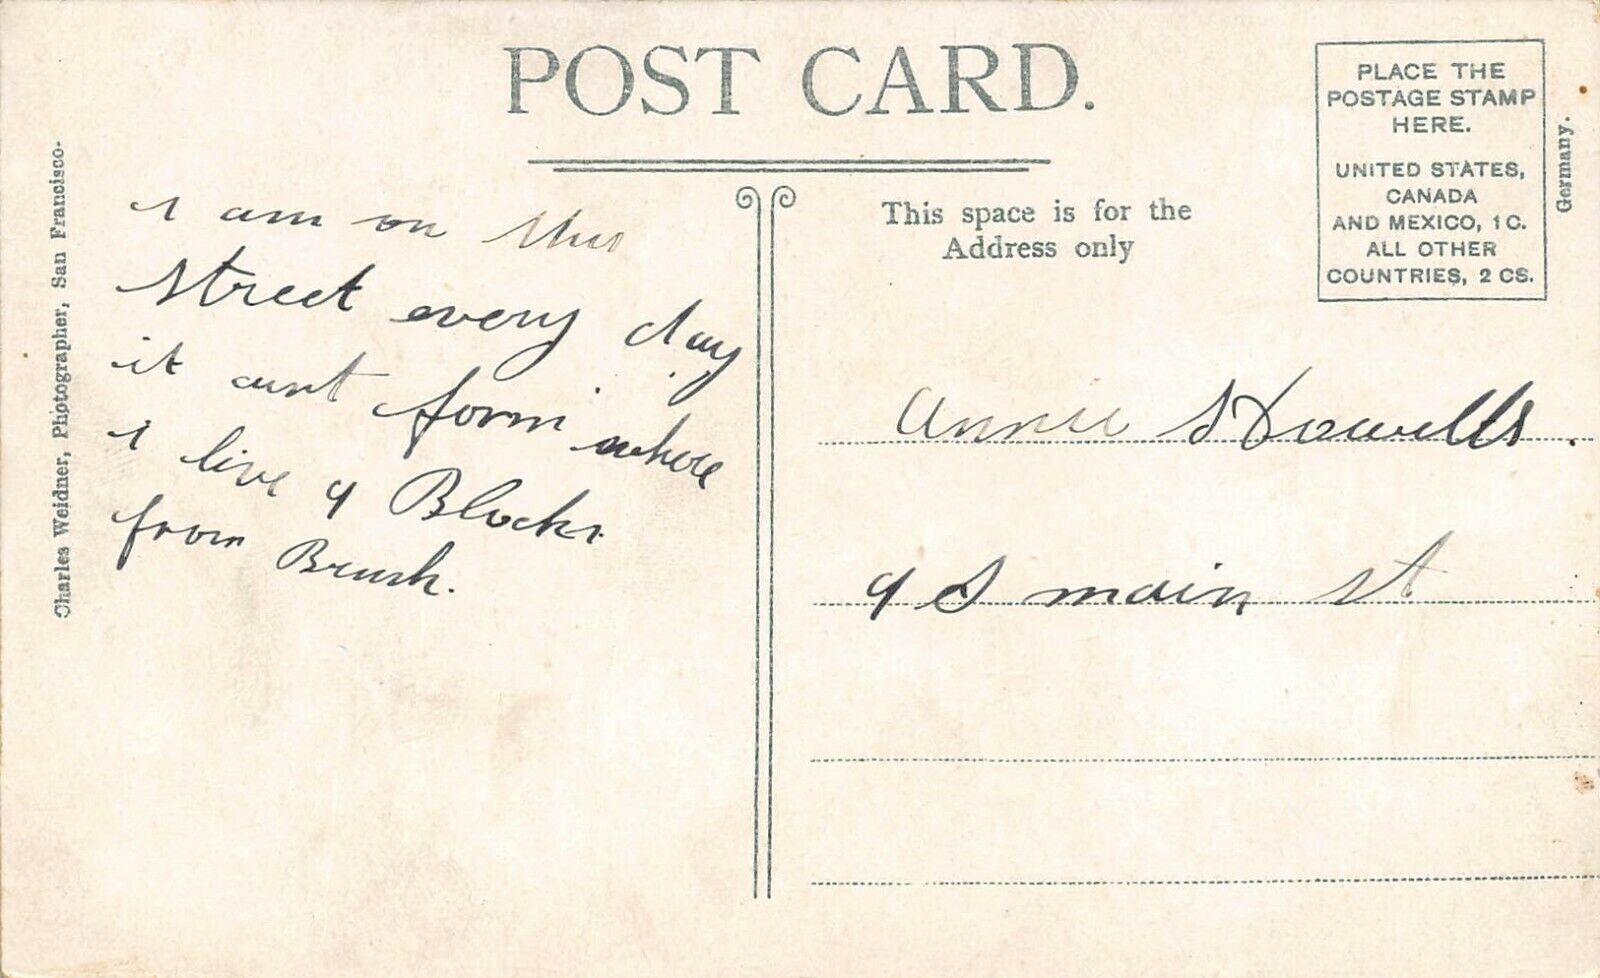 POST CARD.
Charles Weidner, Photographer, San Francisco-
i am on this
street every day
it aint form where
i live 4 Blocks
from Brush.
This space is for the
Address only
PLACE THE
POSTAGE STAMP
HERE.
UNITED STATES,
CANADA
AND MEXICO, 1 C.
ALL OTHER
COUNTRIES, 2 CS.
Germany.
Annie S Howells.
9 S main st